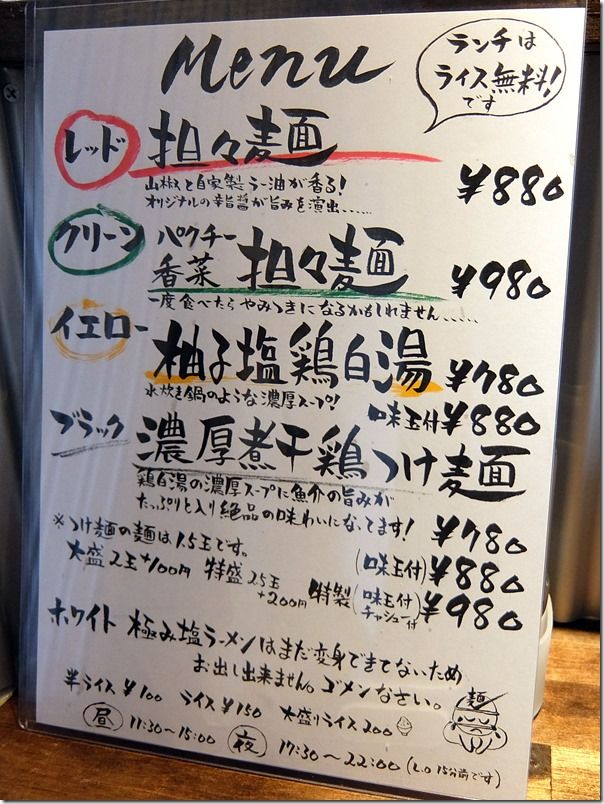 Menu
ランチは
ライス無料!
です
レッド 担々麺
¥880
山椒と自家製ラー油が香る!
オリジナルの辛旨醤が旨みを演出......
グリーン パクチー
香菜 担々麺
¥980
一度食べたらやみつきになるかもしれません.....
イエロー
柚子塩鶏白湯 ¥780
水炊き鍋のような濃厚スープ!
味玉付 ¥880
ブラック 濃厚煮干鶏つけ麺
鶏白湯の濃厚スープに魚介の旨みが
たっぷりと入り絶品の味わいになってます!
¥780
※つけ麺の麺は1.5玉です。
(味玉付) ¥880
大盛2玉+100円 特盛2.5玉
+200円
特製(味玉付
チャーシュー付) ¥980
ホワイト 極み塩ラーメンはまだ変身できてないため
お出し出来ません。ゴメンなさい。
半ライス ¥100 ライス ¥150 大盛りライス 200
麺
昼 11:30~15:00 夜 17:30~22:00 (L.O 15分前です)